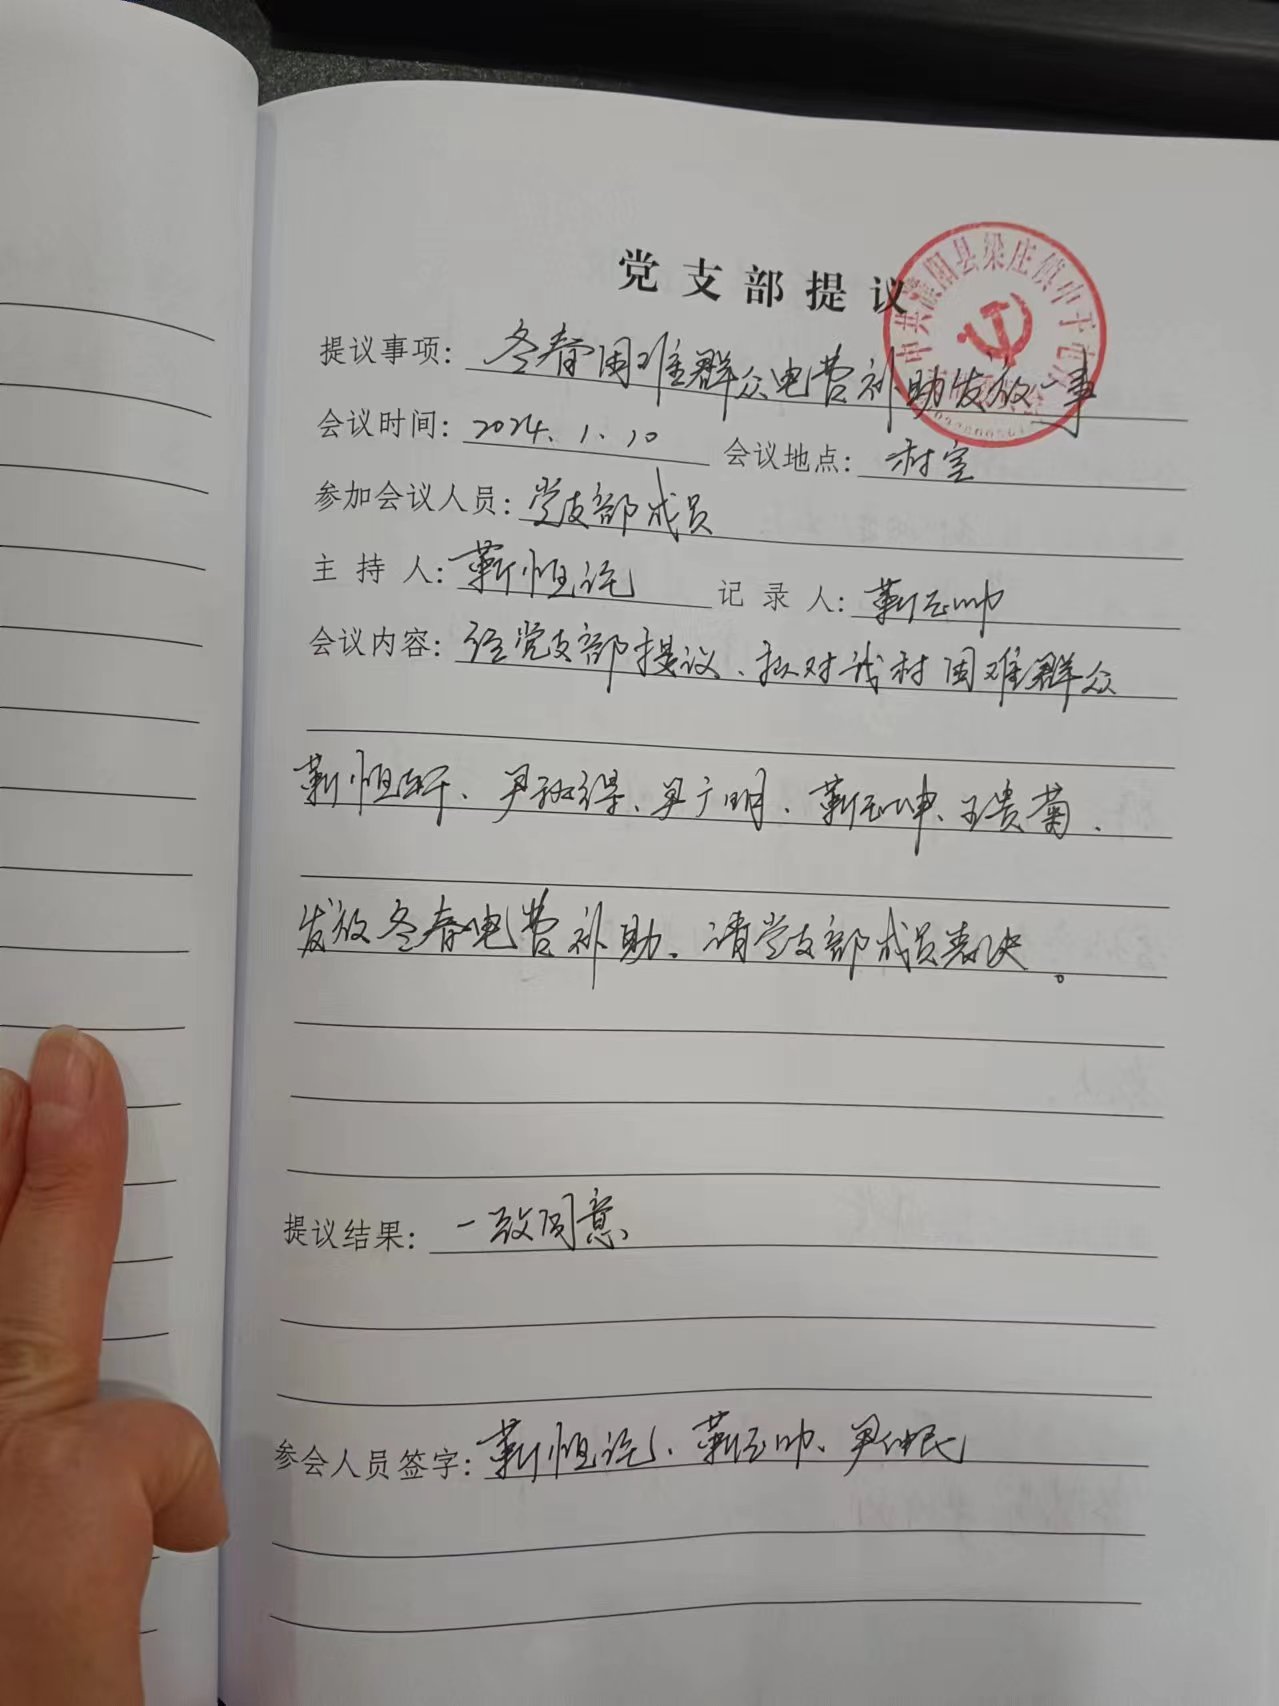 党支部提议
提议事项：冬春困难群众电费补助发放一事
会议时间：2024.1.10 会议地点：村室
参加会议人员：党支部成员
主持人：靳恒 记录人：靳玉帅
会议内容：经党支部提议、拟对我村困难群众
靳恒轩、尹 得、尹广明、靳玉坤、王贵菊、
发放冬春电费补助。请党支部成员表决。
提议结果：一致同意
参会人员签字：靳恒 、靳玉帅、尹仲民